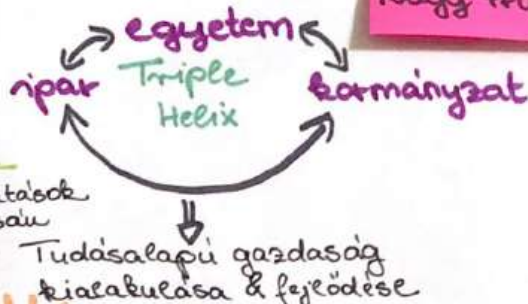 egyetem
ipar
Triple
kormányzat
Helix
Tudásalapú gazdaság
kialakulása & fejlődése